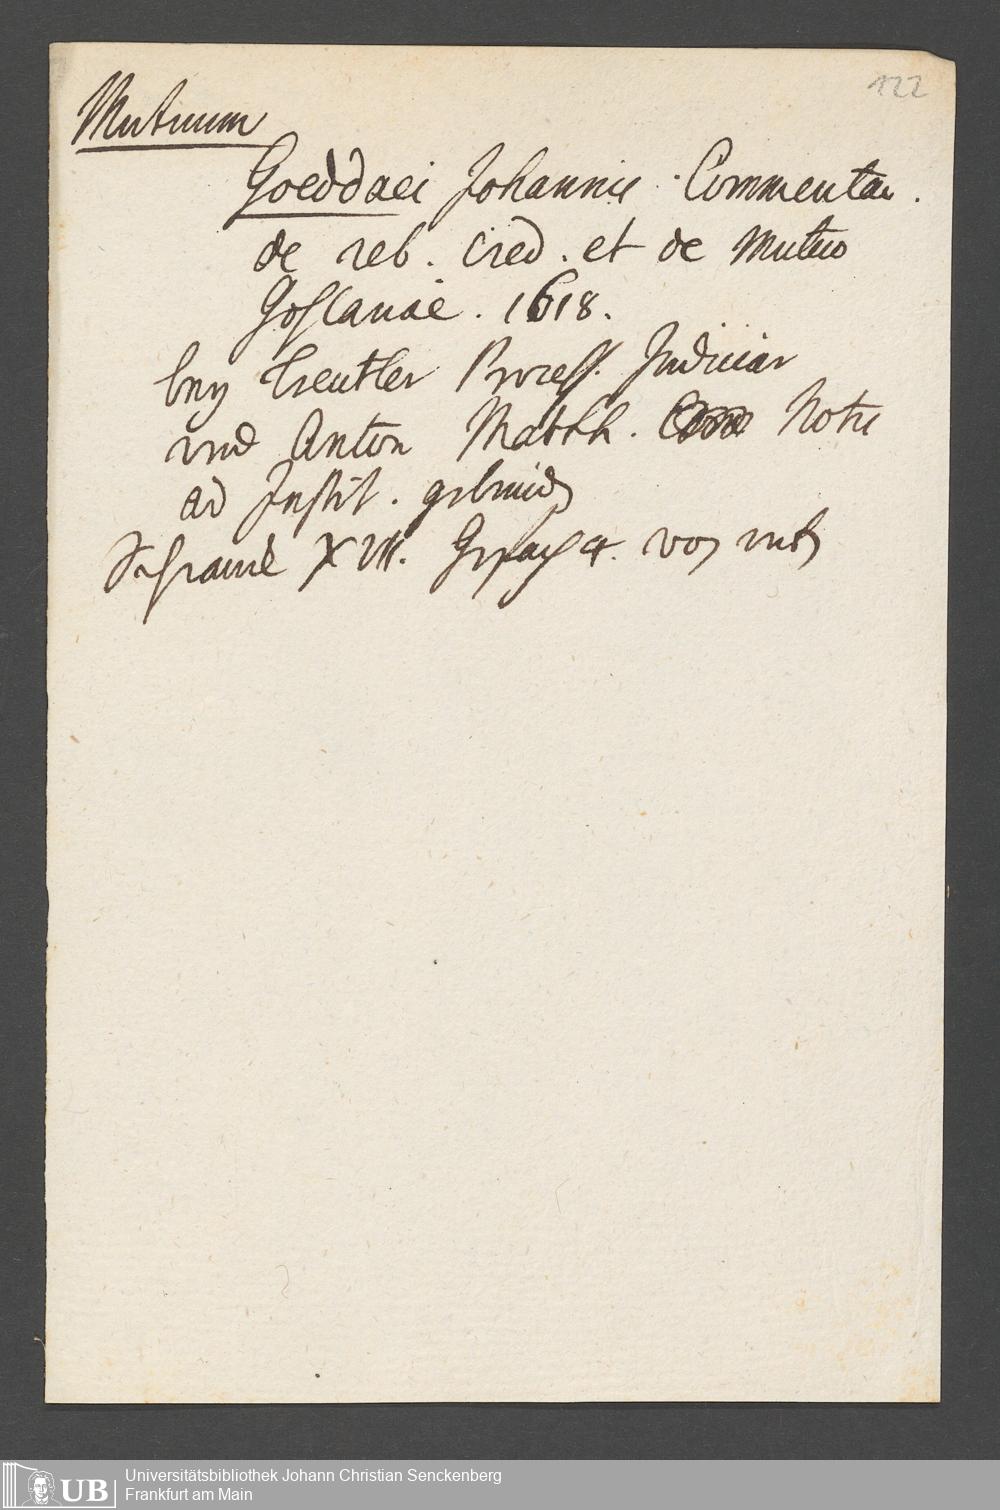 122
Mutuum
Goeddaei Johannis Commentar.
de reb. Cred. et de Mutuo
1618.
bey Treutler Process. Judiciar
und Anton Matth. Notis
ad Instit. gebunden
Schranck XVII. Gefach 4. von unten
UB
Universitätsbibliothek Johann Christian Senckenberg
Frankfurt am Main